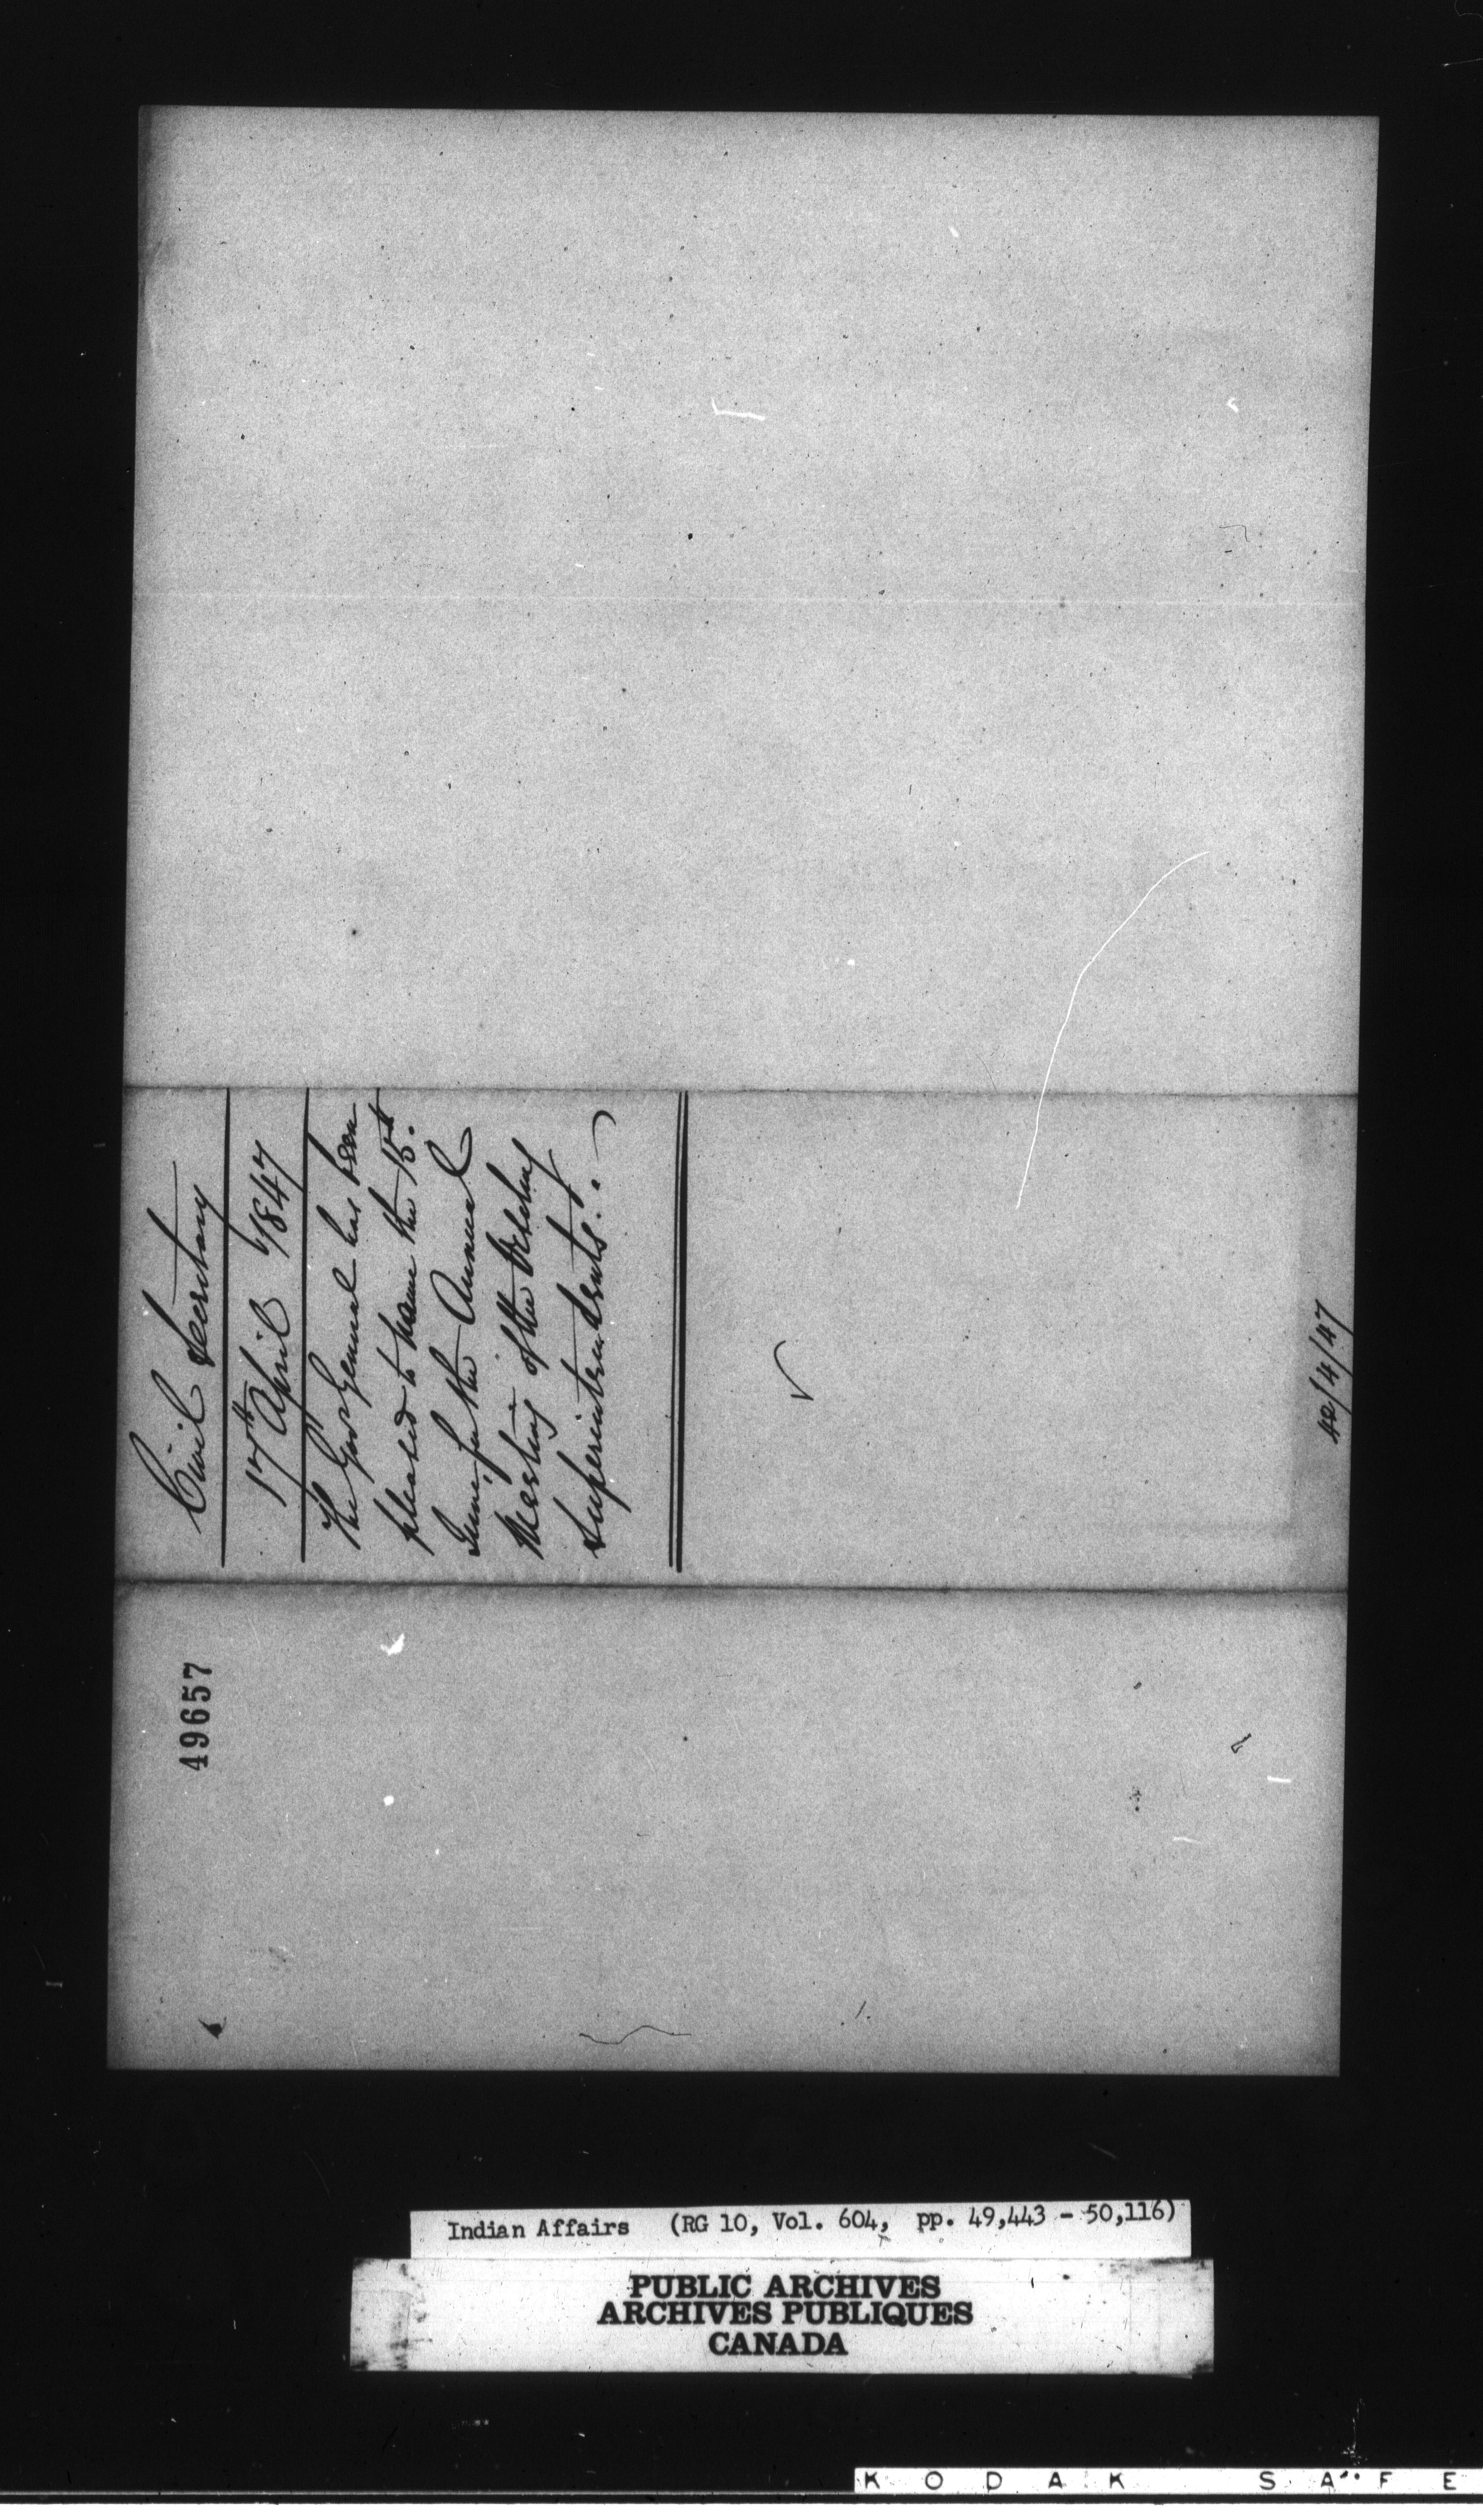 Civil Secretary
17th April 1847
The Gov General has been
pleased to name the 15th
June for the Annual
Meeting of the
Superintendents.
42/4/47
49657
Indian Affairs (RG 10, Vol. 604, pp. 49,443 - 50,116)
PUBLIC ARCHIVES
ARCHIVES PUBLIQUES
CANADA
KODAK SAFE